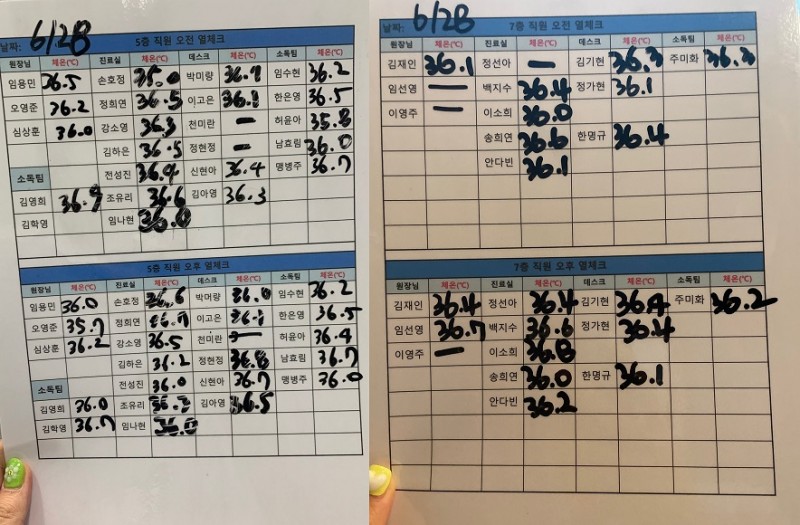 날짜: 6/28
5층 직원 오전 열체크
원장님 체온(℃) 진료실 체온(℃) 데스크 체온(℃) 소독팀 체온(℃)
임용민 36.5 손호정 35.0 박미량 36.7 임수현 36.2
오영준 36.2 정희연 36.5 이고은 한은영 36.5
심상훈 36.0 강소영 36.3 천미란 - 허윤아 35.8
김하은 36.5 정현정 - 남효림 36.0
소독팀 전성진 36.4 신현아 36.4 맹병주 36.7
김영희 36.9 조유리 36.6 김아영 36.3
김학영 임나현 36.0
5층 직원 오후 열체크
원장님 체온(℃) 진료실 체온(℃) 데스크 체온(℃) 소독팀 체온(℃)
임용민 36.0 손호정 36.6 박미량 36.0 임수현 36.2
오영준 35.7 정희연 36.7 이고은 한은영 36.5
심상훈 36.2 강소영 36.5 천미란 - 허윤아 36.4
김하은 36.2 정현정 36.8 남효림 36.7
소독팀 전성진 36.0 신현아 36.7 맹병주 36.0
김영희 36.0 조유리 김아영 36.5
김학영 36.7 임나현 36.0
날짜: 6/28
7층 직원 오전 열체크
원장님 체온(℃) 진료실 체온(℃) 데스크 체온(℃) 소독팀 체온(℃)
김재인 36.1 정선아 - 김기현 36.3 주미화 36.3
임선영 - 백지수 36.4 정가현 36.1
이영주 - 이소희 36.0
송희연 36.6 한명규 36.4
안다빈 36.1
7층 직원 오후 열체크
원장님 체온(℃) 진료실 체온(℃) 데스크 체온(℃) 소독팀 체온(℃)
김재인 36.4 정선아 36.4 김기현 36.4 주미화 36.2
임선영 36.7 백지수 36.6 정가현 36.4
이영주 - 이소희 36.8
송희연 36.0 한명규 36.1
안다빈 36.2